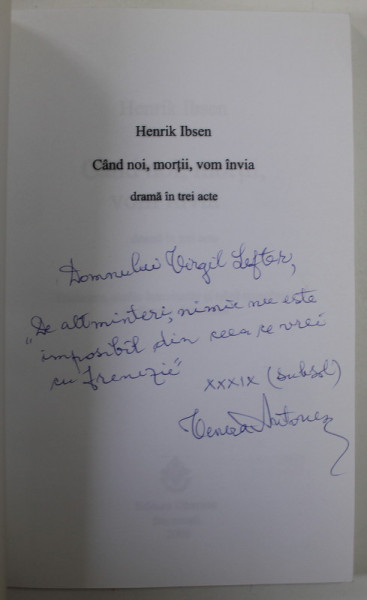 Henrik Ibsen
Când noi, morții, vom învia
dramă în trei acte
Domnului Virgil Lefter,
"De altminteri, nimic nu este
imposibil din ceea ce vrei
cu frenezie"
XXXIX (subsol)
Antonez